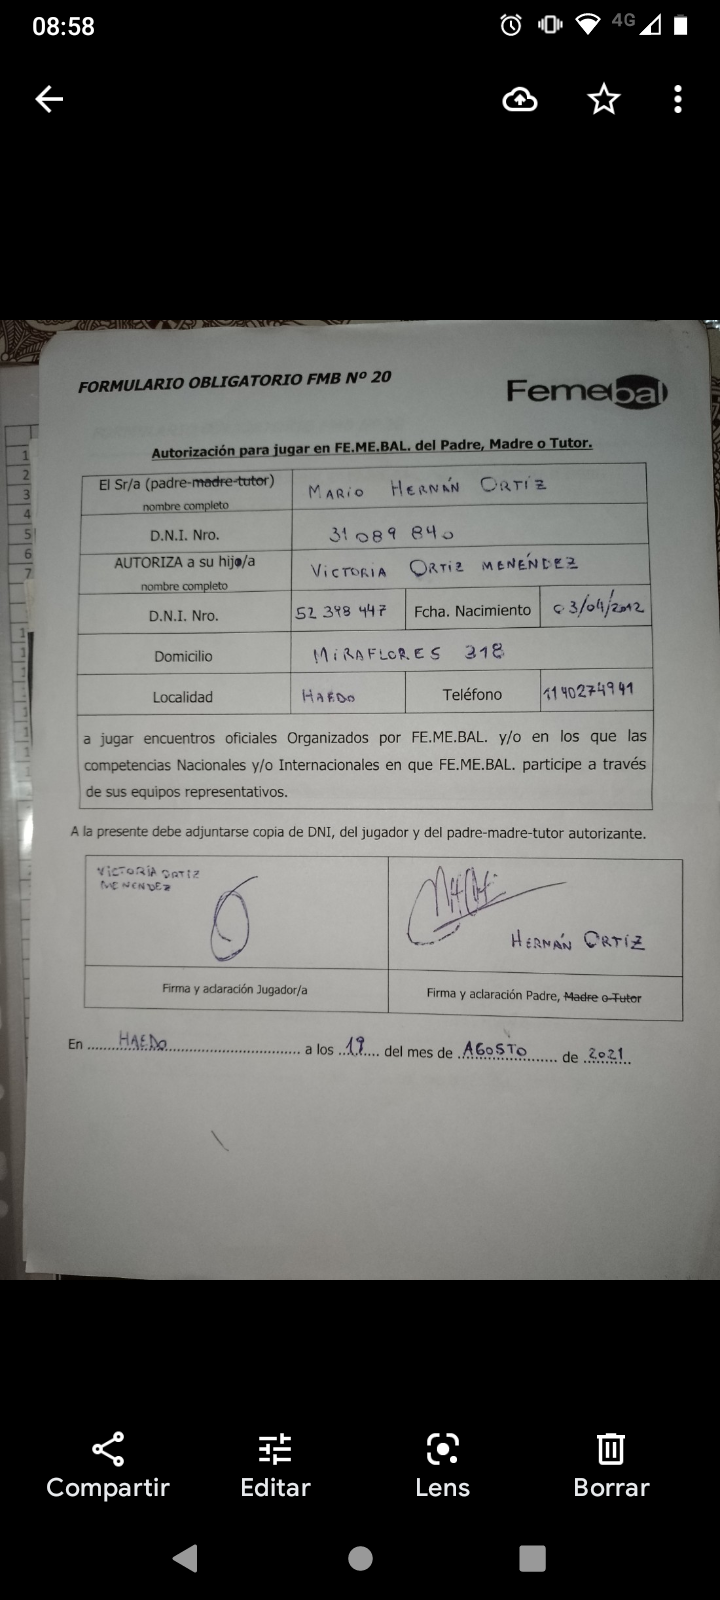 08:58
4G
FORMULARIO OBLIGATORIO FMB Nº 20
Femebal
Autorización para jugar en FE.ME.BAL. del Padre, Madre o Tutor.
El Sr/a (padre-madre-tutor)
nombre completo
MARIO HERNÁN ORTÍZ
D.N.I. Nro.
31089840
AUTORIZA a su hijo/a
nombre completo
VICTORIA ORTIZ MENÉNDEZ
D.N.I. Nro.
52 398 447
Fcha. Nacimiento
03/04/2012
Domicilio
MIRAFLORES 318
Localidad
HAEDO
Teléfono
1140274941
a jugar encuentros oficiales Organizados por FE.ME.BAL. y/o en los que las
competencias Nacionales y/o Internacionales en que FE.ME.BAL. participe a través
de sus equipos representativos.
A la presente debe adjuntarse copia de DNI, del jugador y del padre-madre-tutor autorizante.
VICTORIA ORTIZ
MENENDEZ
HERNÁN ORTÍZ
Firma y aclaración Jugador/a
Firma y aclaración Padre, Madre o Tutor
En HAEDO a los 19 del mes de AGOSTO de 2021
Compartir
Editar
Lens
Borrar